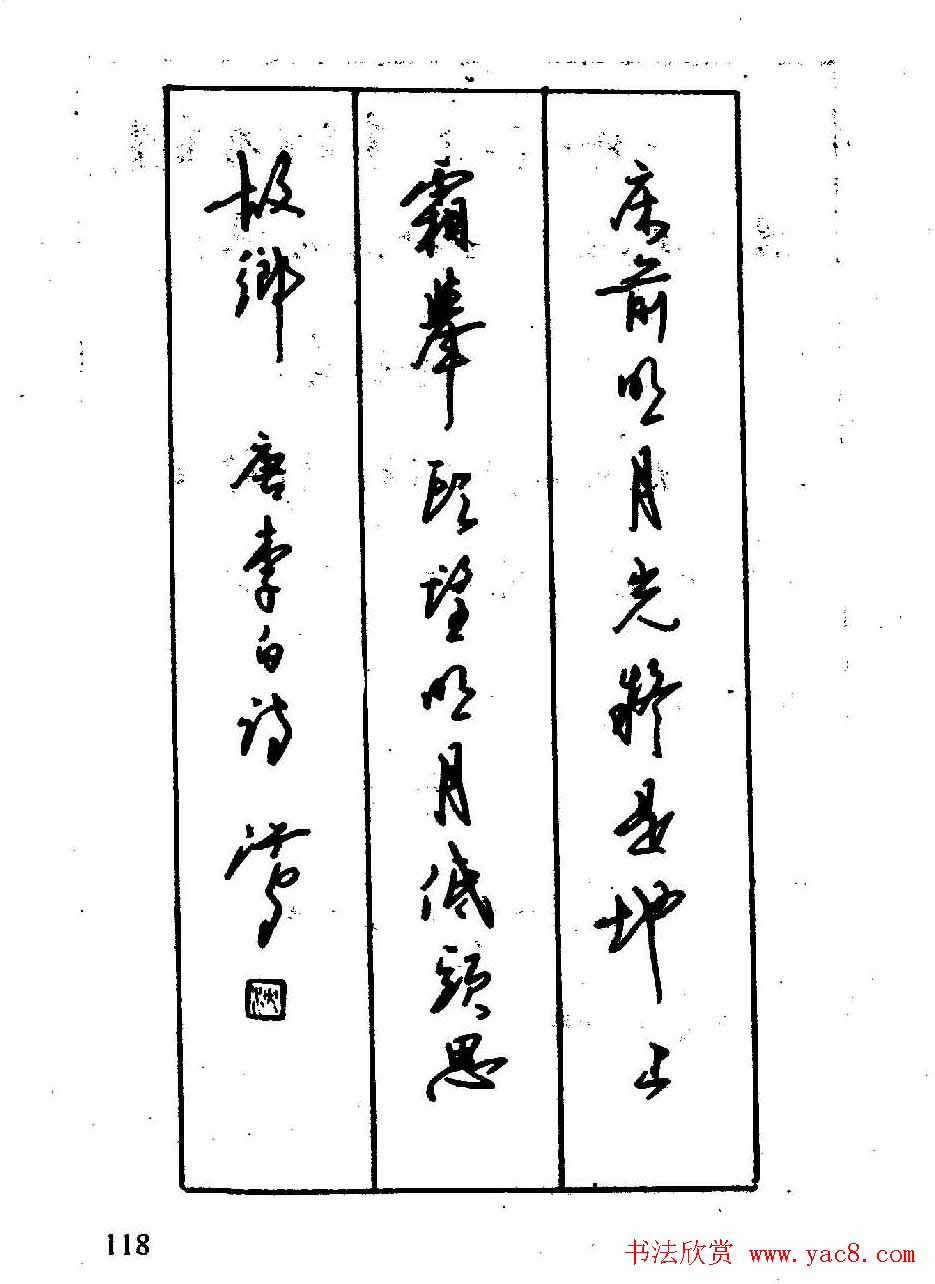 床前明月光疑是地上
霜舉頭望明月低頭思
故鄉 唐李白詩
118
书法欣赏 www.yac8.com